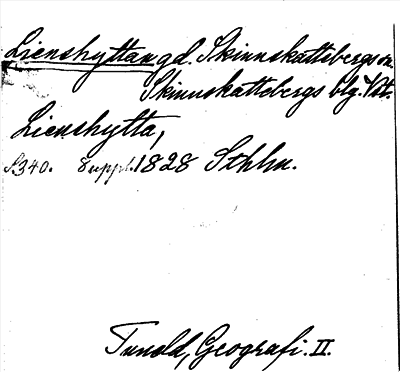 Lienshyttan gd. Skinnskattebergs sn.
Skinnskattebergs blg. Vst.
Lienshytta,
S.340. Suppl. 1828 Sthlm.
Tuneld, Geografi. II.